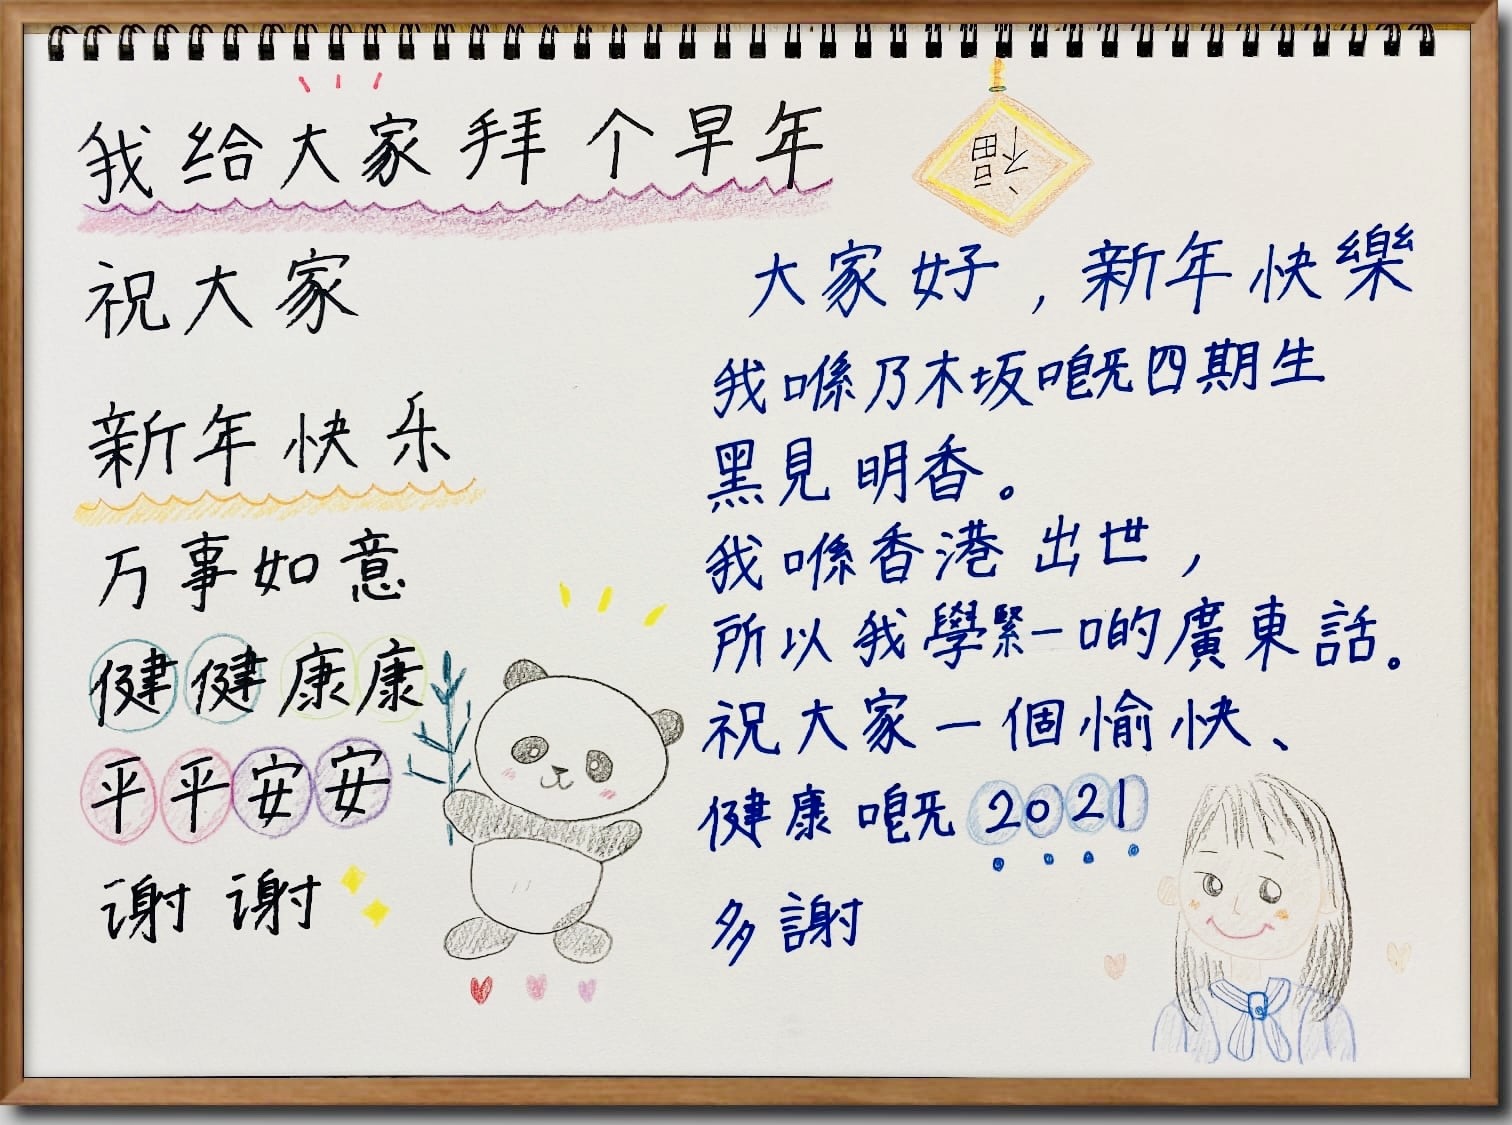 我给大家拜个早年
祝大家
新年快乐
万事如意
健健康康
平平安安
谢谢
福
大家好，新年快樂
我喺乃木坂嘅四期生
黑見明香。
我喺香港出世，
所以我學緊一啲廣東話。
祝大家一個愉快、
健康嘅2021
多謝